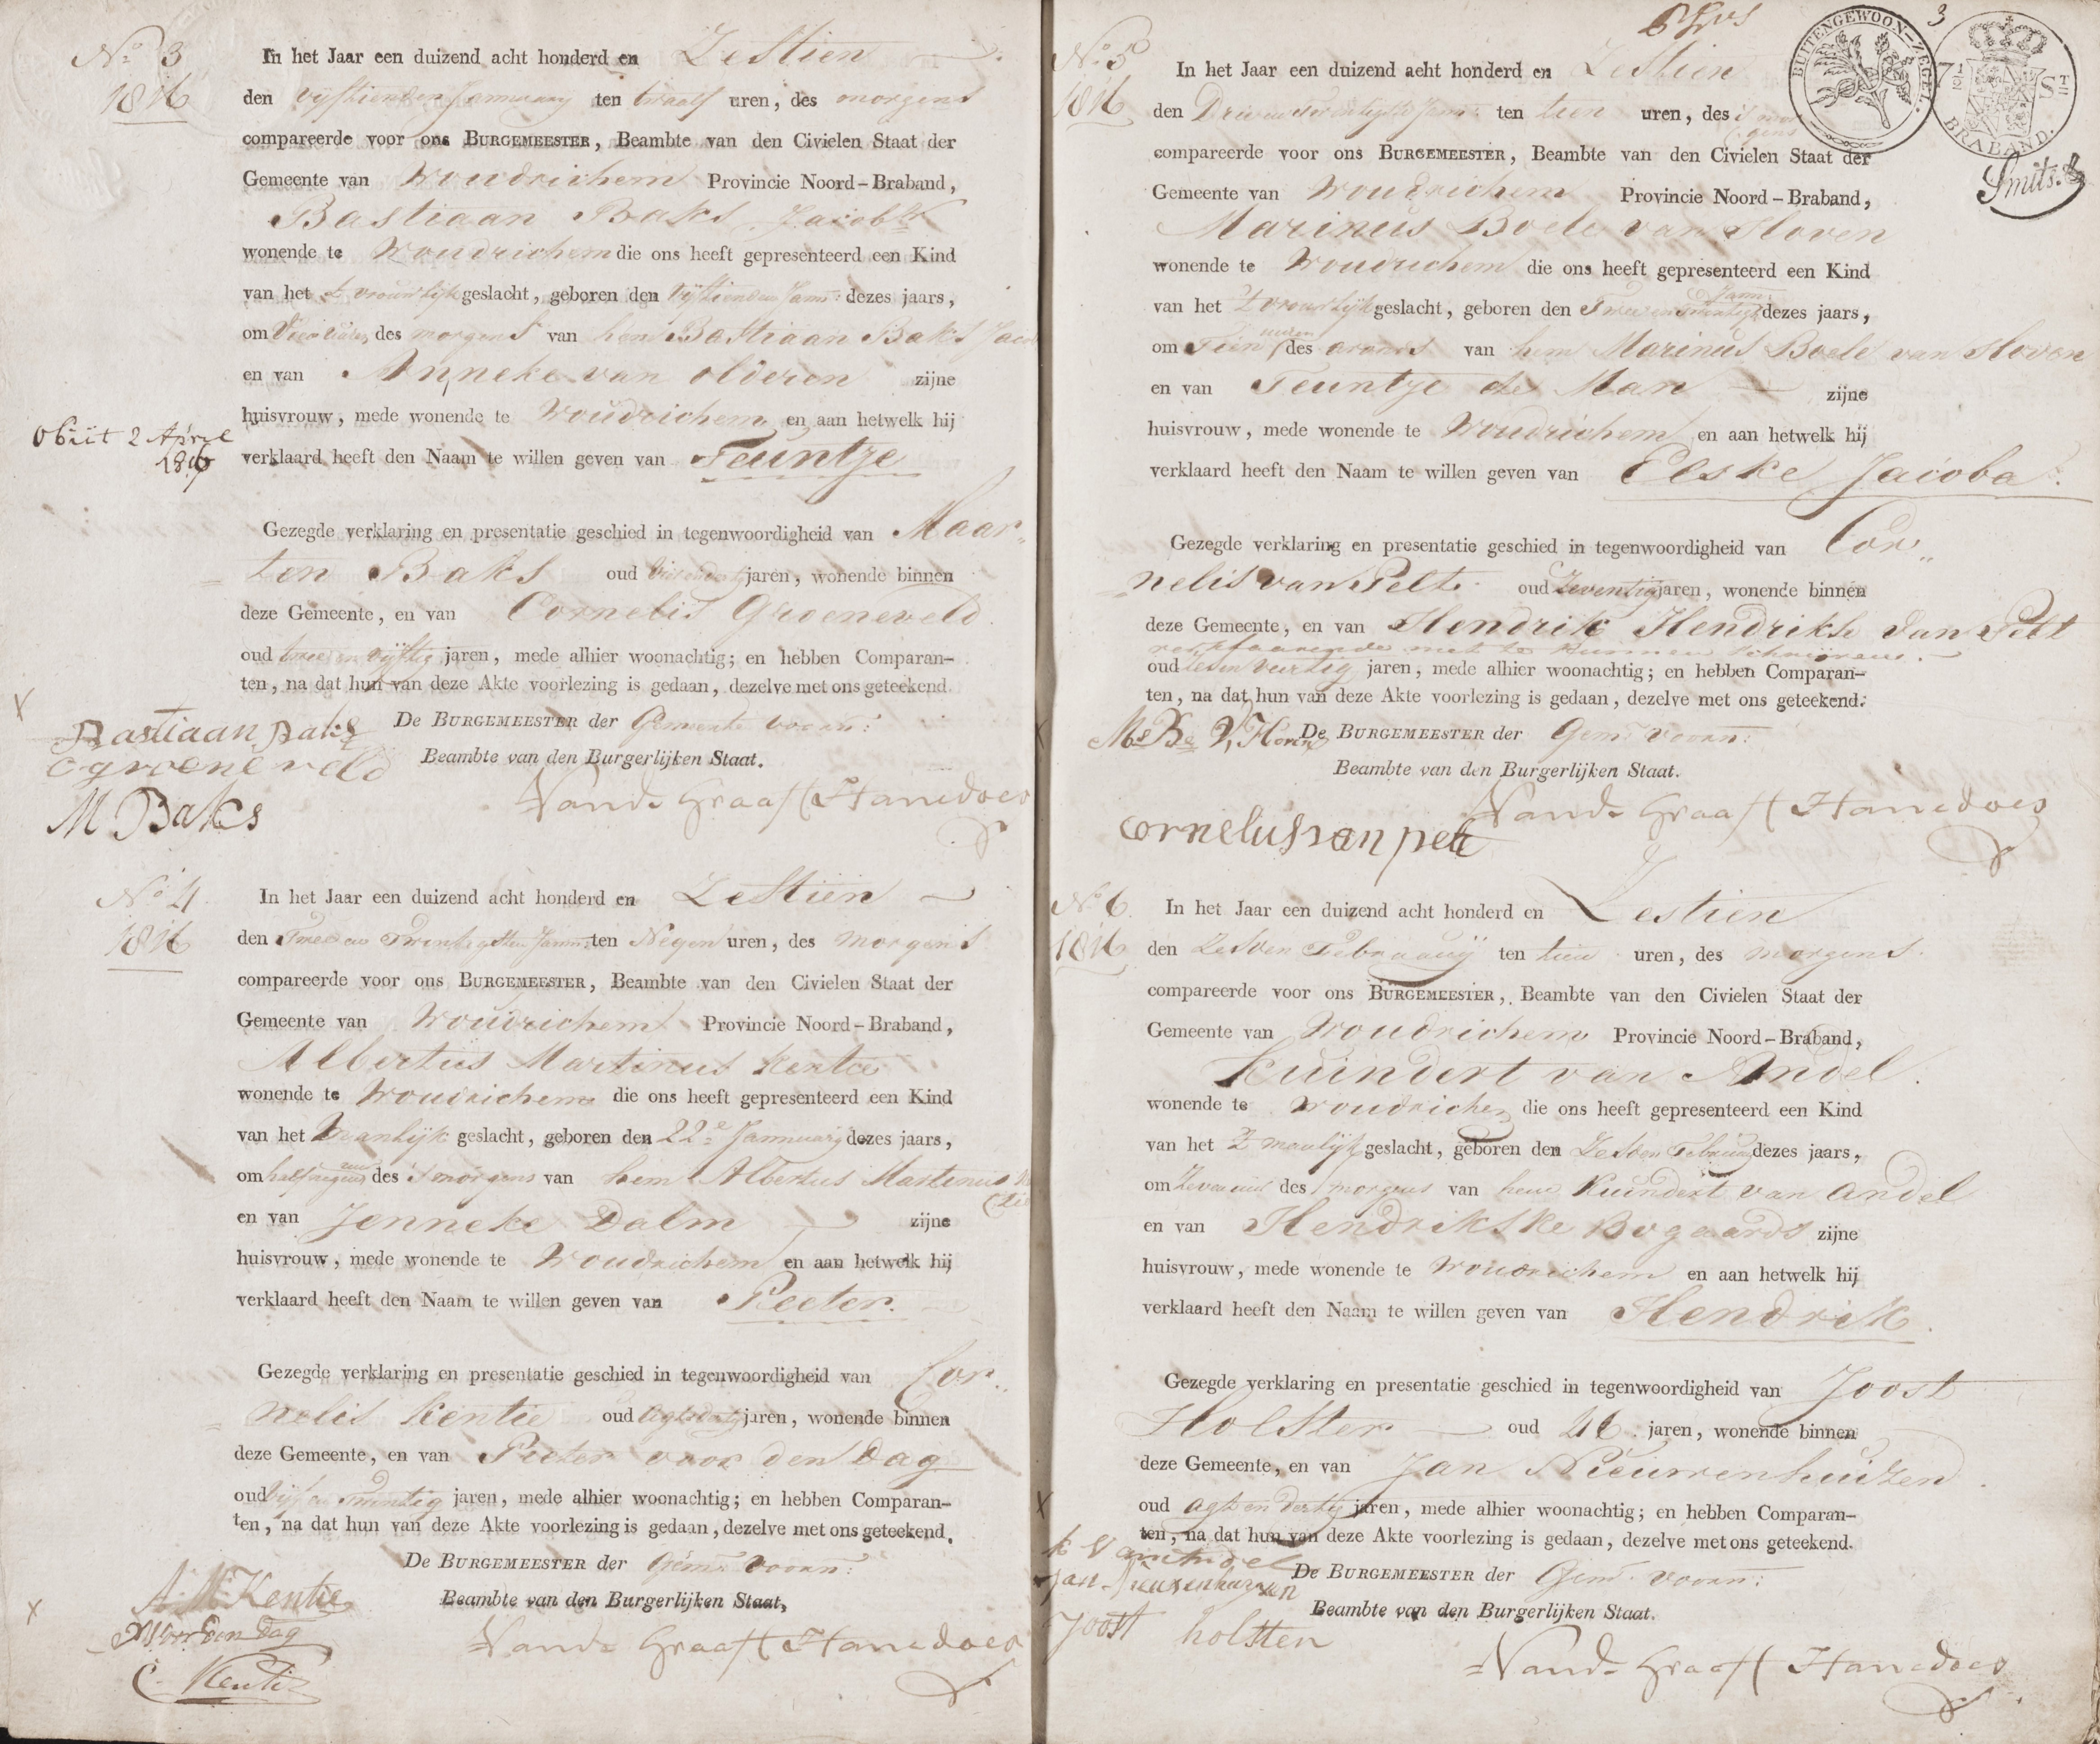 No 3
1816
In het Jaar een duizend acht honderd en Zestien
den vyftienden Januuary ten twaalf uren, des morgens
compareerde voor ons BURGEMEESTER, Beambte van den Civielen Staat der
Gemeente van Woudrichem Provincie Noord-Braband,
Bastiaan Baks Jacobz
wonende te Woudrichem die ons heeft gepresenteerd een Kind
van het vrouwlijk geslacht, geboren den vyftienden Jann: dezes jaars,
om des morgens van hem Bastiaan Baks
en van Anneke van olderen zijne
huisvrouw, mede wonende te Woudrichem en aan hetwelk hij
verklaard heeft den Naam te willen geven van Teuntje
obiit 2 April
1816
Gezegde verklaring en presentatie geschied in tegenwoordigheid van Maar„
ten Baks oud jaren, wonende binnen
deze Gemeente, en van Cornelis Groeneveld
oud twee en vyftig jaren, mede alhier woonachtig; en hebben Comparan-
ten, na dat hun van deze Akte voorlezing is gedaan, dezelve met ons geteekend.
De BURGEMEESTER der Gemeente voorn:
Beambte van den Burgerlijken Staat.
Bastiaan Baks
C groeneveld
M Baks
Vand Graaff Hanedoes
No 4
1816
In het Jaar een duizend acht honderd en Zestien
den Twee en Twintigsten Jann: ten Negen uren, des morgens
compareerde voor ons BURGEMEESTER, Beambte van den Civielen Staat der
Gemeente van Woudrichem Provincie Noord-Braband,
Albertus Martinus Kentie
wonende te Woudrichem die ons heeft gepresenteerd een Kind
van het Manlijk geslacht, geboren den 22e Jannuarij dezes jaars,
om half negen uur des smorgens van hem Albertus Martinus
en van Jenneke Dalm zijne
huisvrouw, mede wonende te Woudrichem en aan hetwelk hij
verklaard heeft den Naam te willen geven van Peeter.
Gezegde verklaring en presentatie geschied in tegenwoordigheid van Cor„
nelis Kentie oud jaren, wonende binnen
deze Gemeente, en van Pieter voor den Dag
oud vijf en Twintig jaren, mede alhier woonachtig; en hebben Comparan-
ten, na dat hun van deze Akte voorlezing is gedaan, dezelve met ons geteekend.
De BURGEMEESTER der Gem: voorn:
Beambte van den Burgerlijken Staat,
A. M. Kentie
P Voor den Dag
C. Kentie
Vand Graaff Hanedoes
3
BUITENGEWOON-ZEGEL.
7 1/2 ST
BRABAND.
Smits.
No 5
1816
In het Jaar een duizend acht honderd en Zestien
den Drie en twintigste Jann: ten tien uren, des smorgens
compareerde voor ons BURGEMEESTER, Beambte van den Civielen Staat der
Gemeente van Woudrichem Provincie Noord-Braband,
Marinus Boele van Hoven
wonende te Woudrichem die ons heeft gepresenteerd een Kind
van het vrouwlijk geslacht, geboren den Twee en twintigste Jann: dezes jaars,
om Tien uuren des avonds van hem Marinus Boele van Hoven
en van Teuntje de Man zijne
huisvrouw, mede wonende te Woudrichem en aan hetwelk hij
verklaard heeft den Naam te willen geven van Elske Jacoba.
Gezegde verklaring en presentatie geschied in tegenwoordigheid van Cor„
nelis van Pelt oud Zeventig jaren, wonende binnen
deze Gemeente, en van Hendrik Hendrikse van Pelt
verklaarende niet te kunnen schrijven.
oud Zesenveertig jaren, mede alhier woonachtig; en hebben Comparan-
ten, na dat hun van deze Akte voorlezing is gedaan, dezelve met ons geteekend.
Ms Be V Hoven De BURGEMEESTER der Gem: voorn:
Beambte van den Burgerlijken Staat.
Vand Graaff Hanedoes
cornelus van pelt
No 6
1816
In het Jaar een duizend acht honderd en Zestien
den Zesden Februarij ten tien uren, des morgens
compareerde voor ons BURGEMEESTER, Beambte van den Civielen Staat der
Gemeente van Woudrichem Provincie Noord-Braband,
Kuindert van Andel.
wonende te Woudrichem die ons heeft gepresenteerd een Kind
van het manlijk geslacht, geboren den Zesden Februarij dezes jaars,
om Zeven uur des morgens van hem Kuindert van Andel
en van Hendrikske Bogaards zijne
huisvrouw, mede wonende te Woudrichem en aan hetwelk hij
verklaard heeft den Naam te willen geven van Hendrik.
Gezegde verklaring en presentatie geschied in tegenwoordigheid van Joost
Holster oud 46 jaren, wonende binnen
deze Gemeente, en van Jan Nieuwenhuizen
oud agt en dertig jaren, mede alhier woonachtig; en hebben Comparan-
ten, na dat hun van deze Akte voorlezing is gedaan, dezelve met ons geteekend.
K Van Andel
De BURGEMEESTER der Gem: voorn:
Beambte van den Burgerlijken Staat.
Joost holsten
Vand Graaff Hanedoes